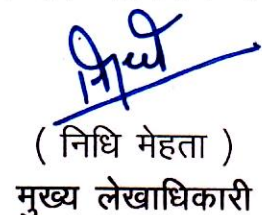 निधि
( निधि मेहता )
मुख्य लेखाधिकारी